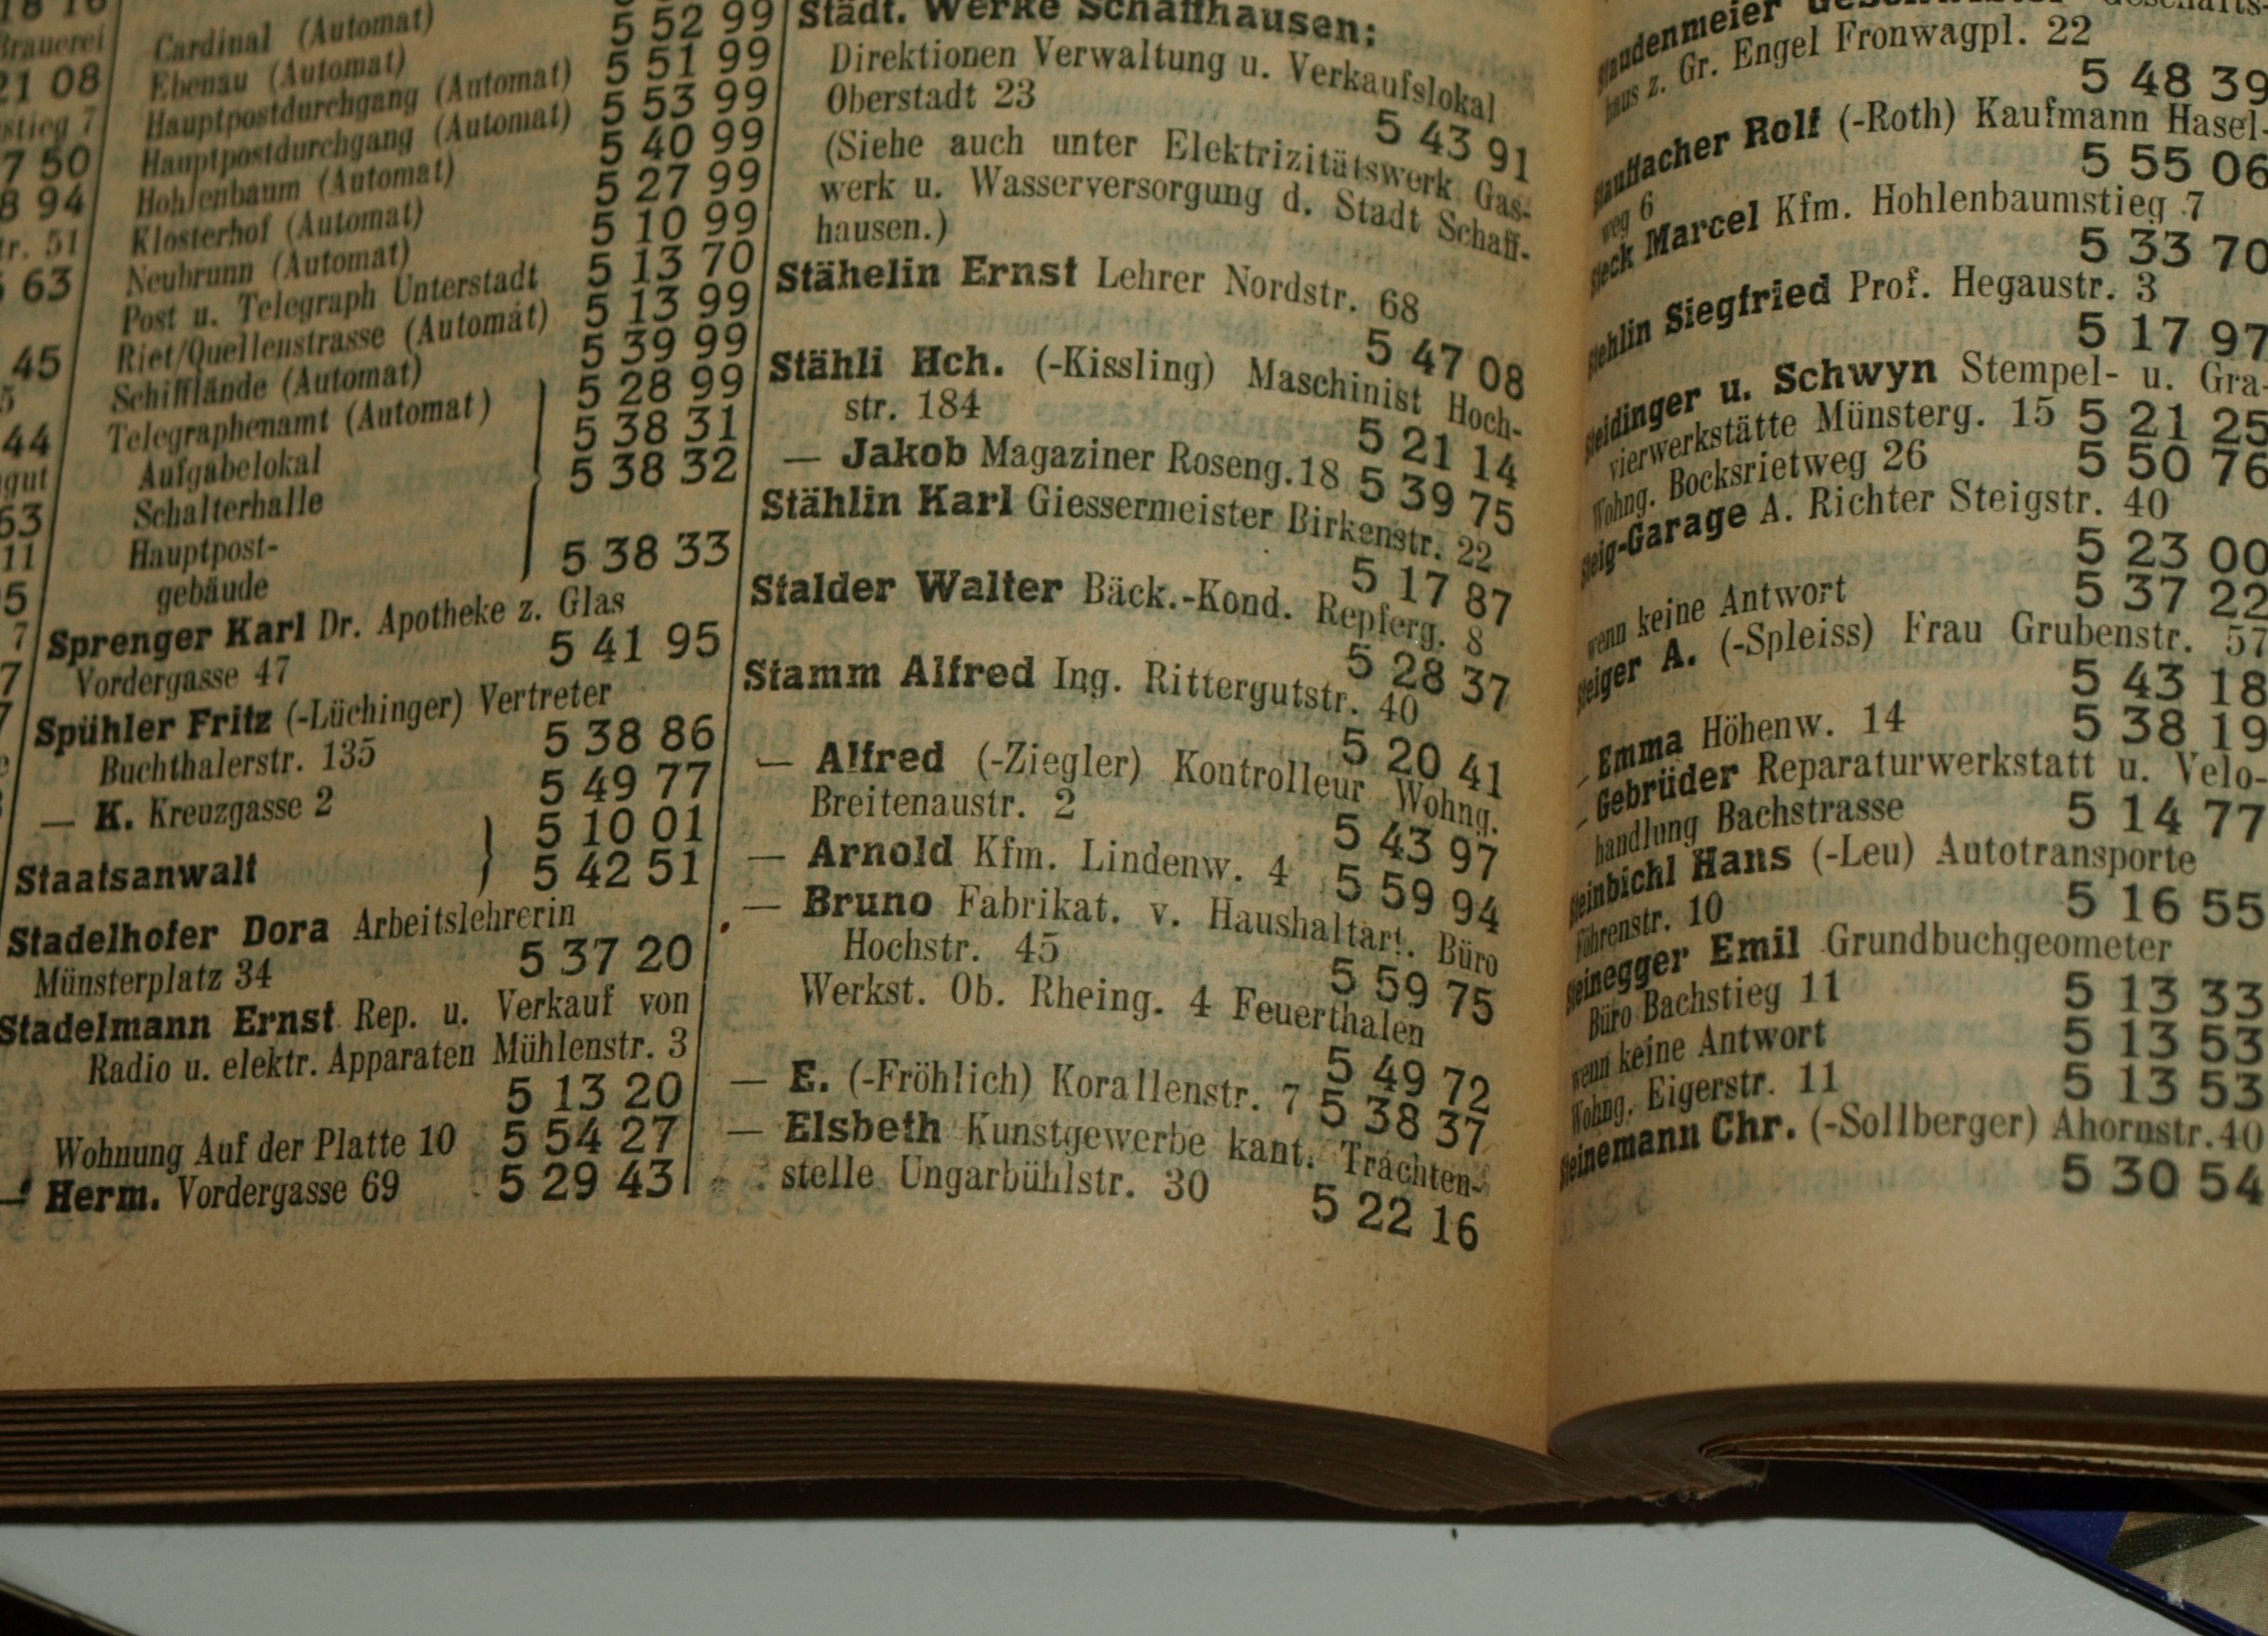 21 08
7 50
8 94
tr. 51
63
45
44
gut
63
11
5
7
Cardinal (Automat) 5 52 99
Ebenau (Automat) 5 51 99
Hauptpostdurchgang (Automat) 5 53 99
Hauptpostdurchgang (Automat) 5 40 99
Hohlenbaum (Automat) 5 27 99
Klosterhof (Automat) 5 10 99
Neubrunn (Automat) 5 13 70
Post u. Telegraph Unterstadt 5 13 99
Riet/Quellenstrasse (Automat) 5 39 99
Schifflände (Automat) 5 28 99
Telegraphenamt (Automat) 5 38 31
Aufgabelokal 5 38 32
Schalterhalle
Hauptpost-
gebäude 5 38 33
Sprenger Karl Dr. Apotheke z. Glas
Vordergasse 47 5 41 95
Spühler Fritz (-Lüchinger) Vertreter
Buchthalerstr. 135 5 38 86
— K. Kreuzgasse 2 5 49 77
Staatsanwalt } 5 10 01
5 42 51
Stadelhofer Dora Arbeitslehrerin
Münsterplatz 34 5 37 20
Stadelmann Ernst Rep. u. Verkauf von
Radio u. elektr. Apparaten Mühlenstr. 3
5 13 20
Wohnung Auf der Platte 10 5 54 27
— Herm. Vordergasse 69 5 29 43
Städt. Werke Schaffhausen:
Direktionen Verwaltung u. Verkaufslokal
Oberstadt 23 5 43 91
(Siehe auch unter Elektrizitätswerk Gas-
werk u. Wasserversorgung d. Stadt Schaff-
hausen.)
Stähelin Ernst Lehrer Nordstr. 68
5 47 08
Stähli Hch. (-Kissling) Maschinist Hoch-
str. 184 5 21 14
— Jakob Magaziner Roseng. 18 5 39 75
Stählin Karl Giessermeister Birkenstr. 22
5 17 87
Stalder Walter Bäck.-Kond. Repferg. 8
5 28 37
Stamm Alfred Ing. Rittergutstr. 40
5 20 41
— Alfred (-Ziegler) Kontrolleur Wohng.
Breitenaustr. 2 5 43 97
— Arnold Kfm. Lindenw. 4 5 59 94
— Bruno Fabrikat. v. Haushaltart. Büro
Hochstr. 45 5 59 75
Werkst. Ob. Rheing. 4 Feuerthalen
5 49 72
— E. (-Fröhlich) Korallenstr. 7 5 38 37
— Elsbeth Kunstgewerbe kant. Trachten-
stelle Ungarbühlstr. 30 5 22 16
haus z. Gr. Engel Fronwagpl. 22
5 48 39
Stauffacher Rolf (-Roth) Kaufmann Hasel-
weg 6 5 55 06
Steck Marcel Kfm. Hohlenbaumstieg 7
5 33 70
Stehlin Siegfried Prof. Hegaustr. 3
5 17 97
Steidinger u. Schwyn Stempel- u. Gra-
vierwerkstätte Münsterg. 15 5 21 25
Wohng. Bocksrietweg 26 5 50 76
Steig-Garage A. Richter Steigstr. 40
5 23 00
wenn keine Antwort 5 37 22
Steiger A. (-Spleiss) Frau Grubenstr. 57
5 43 18
— Emma Höhenw. 14 5 38 19
— Gebrüder Reparaturwerkstatt u. Velo-
handlung Bachstrasse 5 14 77
Steinbichl Hans (-Leu) Autotransporte
Föhrenstr. 10 5 16 55
Steinegger Emil Grundbuchgeometer
Büro Bachstieg 11 5 13 33
wenn keine Antwort 5 13 53
Wohng. Eigerstr. 11 5 13 53
Steinemann Chr. (-Sollberger) Ahornstr. 40
5 30 54